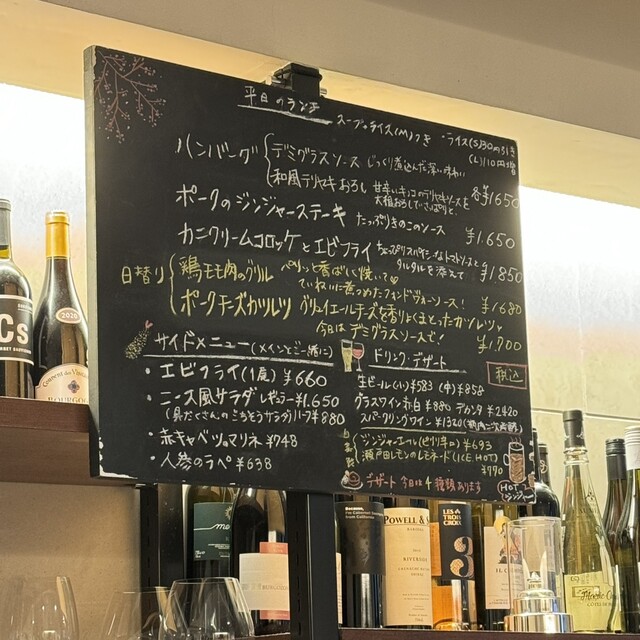 平日のランチ
スープ・ライス(M)つき ・ライス(S)30円引き
(L)110円増
ハンバーグ デミグラスソース じっくり煮込んだ深い味わい
和風テリヤキおろし 甘辛いキノコのテリヤキソースを 各¥1650
大根おろしでさっぱりと、
ポークのジンジャーステーキ たっぷりきのこのソース ¥1.650
カニクリームコロッケとエビフライ ちょっぴりスパイシーなトマトソースと
タルタルを添えて ¥1.850
日替り 鶏モモ肉のグリル パリッと香ばしく焼いて
ていねいに煮つめたフォンドヴォーソース! ¥1680
ポークチーズカツレツ グリュイエールチーズを香りよくまとったカツレツ
今日はデミグラスソースで! ¥1.700
サイドメニュー(メインとご一緒に)
・エビフライ(1尾) ¥660
・ニース風サラダ レギュラー¥1.650
(具だくさんのごちそうサラダ)ハーフ¥880
・赤キャベツのマリネ ¥748
・人参のラペ ¥638
ドリンク、デザート 税込
生ビール(小)¥583 (中)¥858
グラスワイン赤白 ¥880 デカンタ ¥2420
スパークリングワイン ¥1320
自家製 ジンジャーエール(ピリ辛口) ¥693
瀬戸田レモンのレモネード(ICE.HOT)
¥770
デザート 今日は4種類あります
HOT
ジンジャー
Cs
2020
BOURGOGNE
POWELL & 
RIVERSIDE
LES
TROIS
CROIX
3